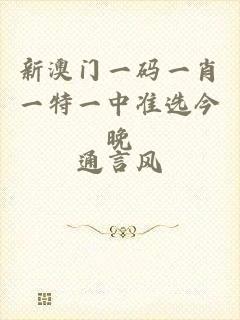 新澳门一码一肖
一特一中准选今
晚
通言风